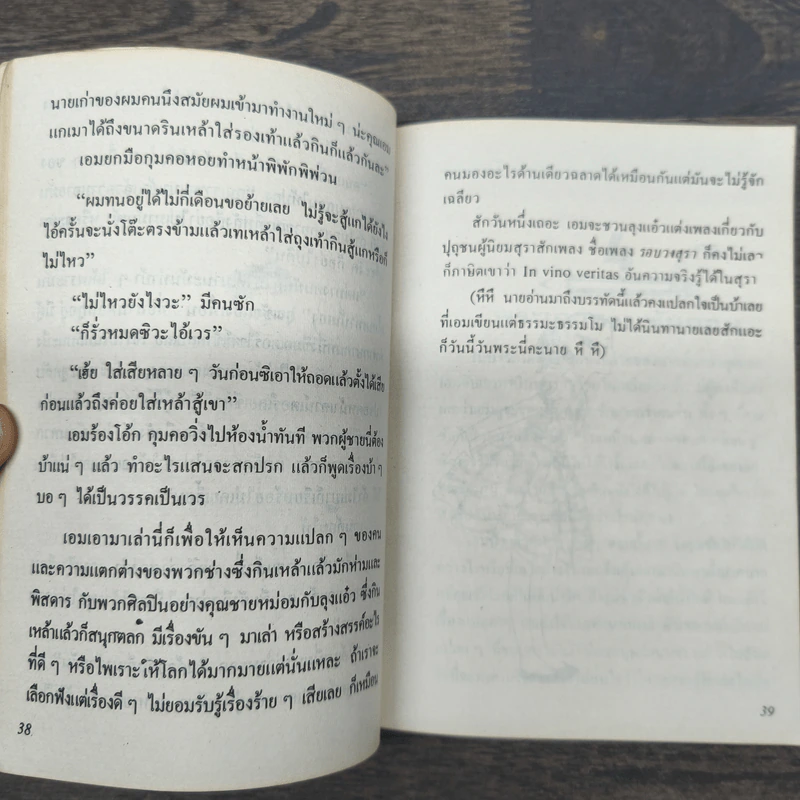 นายเก่าของผมคนนึงสมัยผมเข้ามาทำงานใหม่ ๆ น่ะคุณเอม
แกเมาได้ถึงขนาดรินเหล้าใส่รองเท้าแล้วกินก็แล้วกันละ”
เอมยกมือกุมคอหอยทำหน้าพิพักพิพ่วน
“ผมทนอยู่ได้ไม่กี่เดือนขอย้ายเลย ไม่รู้จะสู้แกได้ยังไง
ไอ้ครั้นจะนั่งโต๊ะตรงข้ามแล้วเทเหล้าใส่ถุงเท้ากินสู้แกหรือก็
ไม่ไหว”
“ไม่ไหวยังไงวะ” มีคนซัก
“ก็รั่วหมดซิวะไอ้เวร”
“เฮ้ย ใส่เสียหลาย ๆ วันก่อนซิเอาให้ถอดแล้วตั้งได้เสีย
ก่อนแล้วถึงค่อยใส่เหล้าสู้เขา”
เอมร้องโอ้ก กุมคอวิ่งไปห้องน้ำทันที พวกผู้ชายนี่ต้อง
บ้าแน่ ๆ แล้ว ทำอะไรแสนจะสกปรก แล้วก็พูดเรื่องบ้า ๆ
บอ ๆ ได้เป็นวรรคเป็นเวร
เอมเอามาเล่านี่ก็เพื่อให้เห็นความแปลก ๆ ของคน
และความแตกต่างของพวกช่างซึ่งกินเหล้าแล้วมักห่ามและ
พิสดาร กับพวกศิลปินอย่างคุณชายหม่อมกับลุงแอ๋ว ซึ่งกิน
เหล้าแล้วก็สนุกตลก มีเรื่องขัน ๆ มาเล่า หรือสร้างสรรค์อะไร
ที่ดี ๆ หรือไพเราะให้โลกได้มากมายแต่นั่นแหละ ถ้าเราจะ
เลือกฟังแต่เรื่องดี ๆ ไม่ยอมรับรู้เรื่องร้าย ๆ เสียเลย ก็เหมือน
38
คนมองอะไรด้านเดียวฉลาดได้เหมือนกันแต่มันจะไม่รู้จัก
เฉลียว
สักวันหนึ่งเถอะ เอมจะชวนลุงแอ๋วแต่งเพลงเกี่ยวกับ
ปุถุชนผู้นิยมสุราสักเพลง ชื่อเพลง รอบวงสุรา ก็คงไม่เลว
ก็ภาษิตเขาว่า In vino veritas อันความจริงรู้ได้ในสุรา
(หึหึ นายอ่านมาถึงบรรทัดนี้แล้วคงแปลกใจเป็นบ้าเลย
ที่เอมเขียนแต่ธรรมะธรรมโม ไม่ได้นินทานายเลยสักแอะ
ก็วันนี้วันพระนี่คะนาย หึ หึ)
39